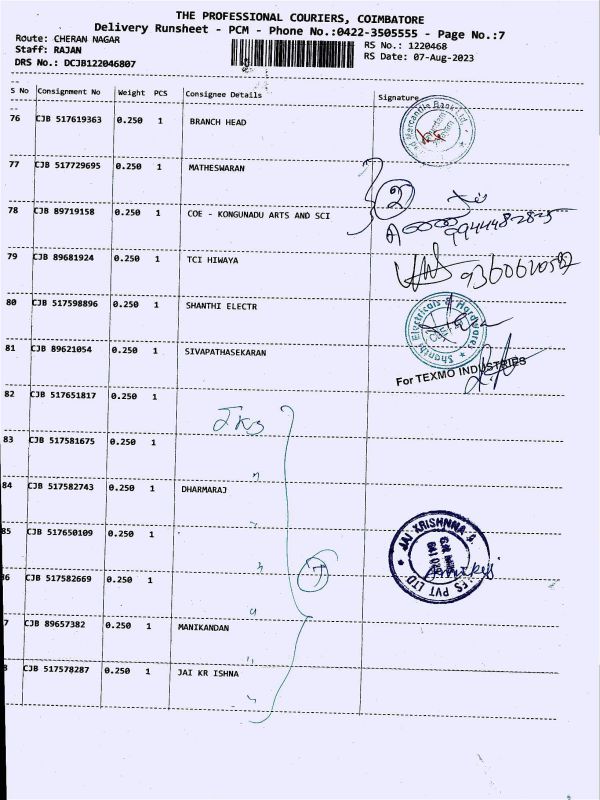 THE PROFESSIONAL COURIERS, COIMBATORE
Delivery Runsheet - PCM - Phone No.:0422-3505555 - Page No.:7
Route: CHERAN NAGAR
Staff: RAJAN
DRS No.: DCJB122046807
RS No.: 1220468
RS Date: 07-Aug-2023
S No Consignment No Weight PCS Consignee Details Signature
76 CJB 517619363 0.250 1 BRANCH HEAD
77 CJB 517729695 0.250 1 MATHESWARAN
2
78 CJB 89719158 0.250 1 COE - KONGUNADU ARTS AND SCI
9944482825
79 CJB 89681924 0.250 1 TCI HIWAYA
80 CJB 517598896 0.250 1 SHANTHI ELECTR
Shanthi Electricals & Hardwares
81 CJB 89621054 0.250 1 SIVAPATHASEKARAN
For TEXMO INDUSTRIES
82 CJB 517651817 0.250 1
83 CJB 517581675 0.250 1
84 CJB 517582743 0.250 1 DHARMARAJ
85 CJB 517650109 0.250 1
JAI KRISHNNA
ES PVT LTD
6 CJB 517582669 0.250 1
7
7 CJB 89657382 0.250 1 MANIKANDAN
8 CJB 517578287 0.250 1 JAI KR ISHNA